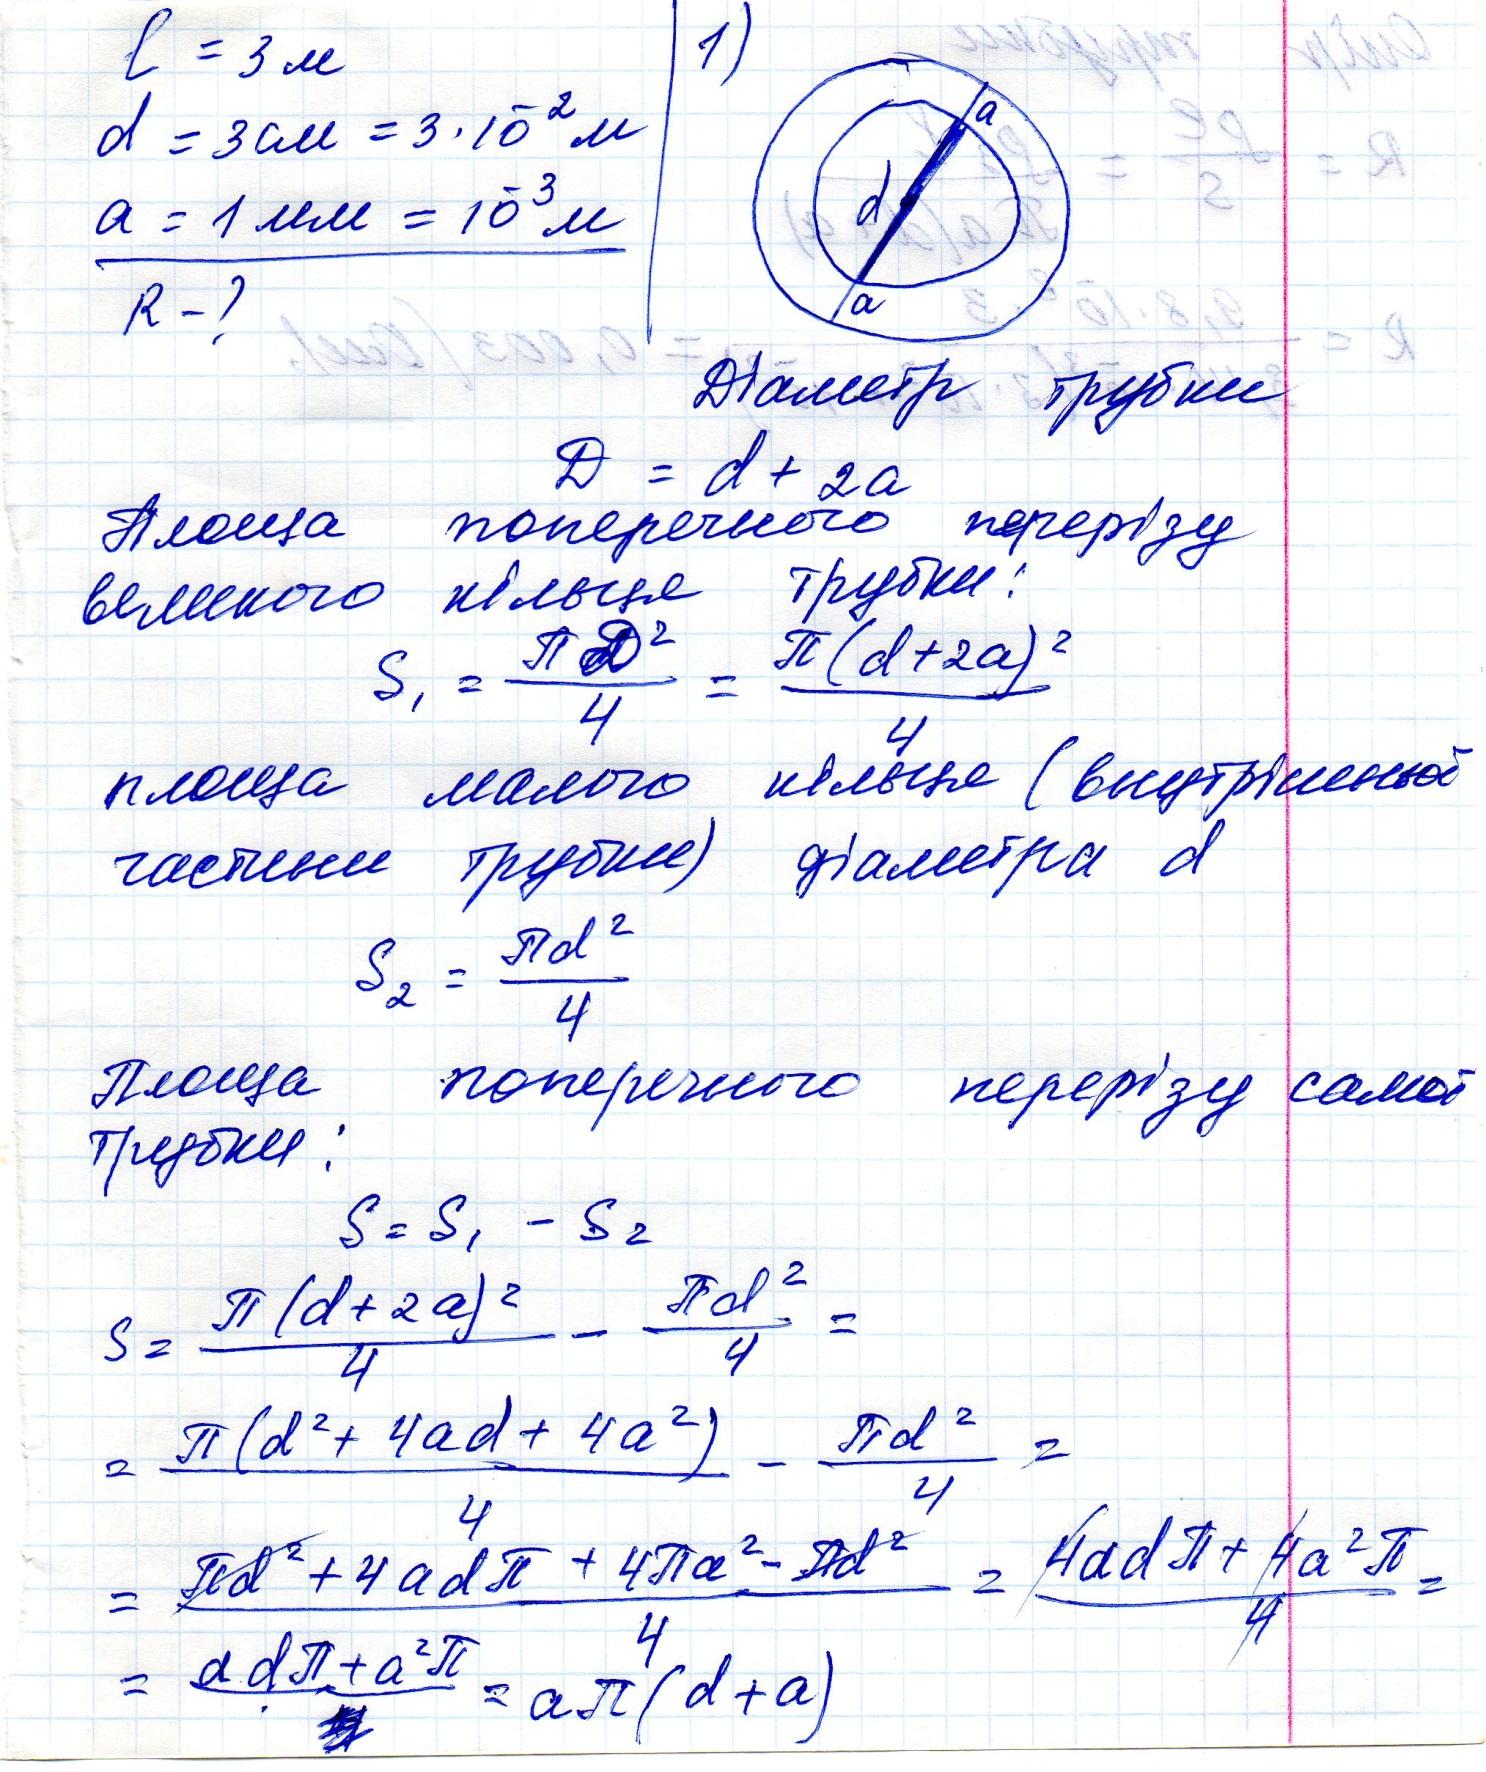 l = 3 м
d = 3 см = 3·10⁻² м
a = 1 мм = 10⁻³ м
R - ?
1)
a
d
a
Діаметр трубки
D = d + 2a
Площа поперечного перерізу
великого кільця трубки:
S₁ = πD²/4 = π(d+2a)²/4
площа малого кільця (внутрішньої
частини трубки) діаметра d
S₂ = πd²/4
Площа поперечного перерізу самої
трубки:
S = S₁ - S₂
S = π(d+2a)²/4 - πd²/4 =
= π(d² + 4ad + 4a²)/4 - πd²/4 =
= (πd² + 4adπ + 4πa² - πd²)/4 = (4adπ + 4a²π)/4 =
= adπ + a²π = aπ(d+a)